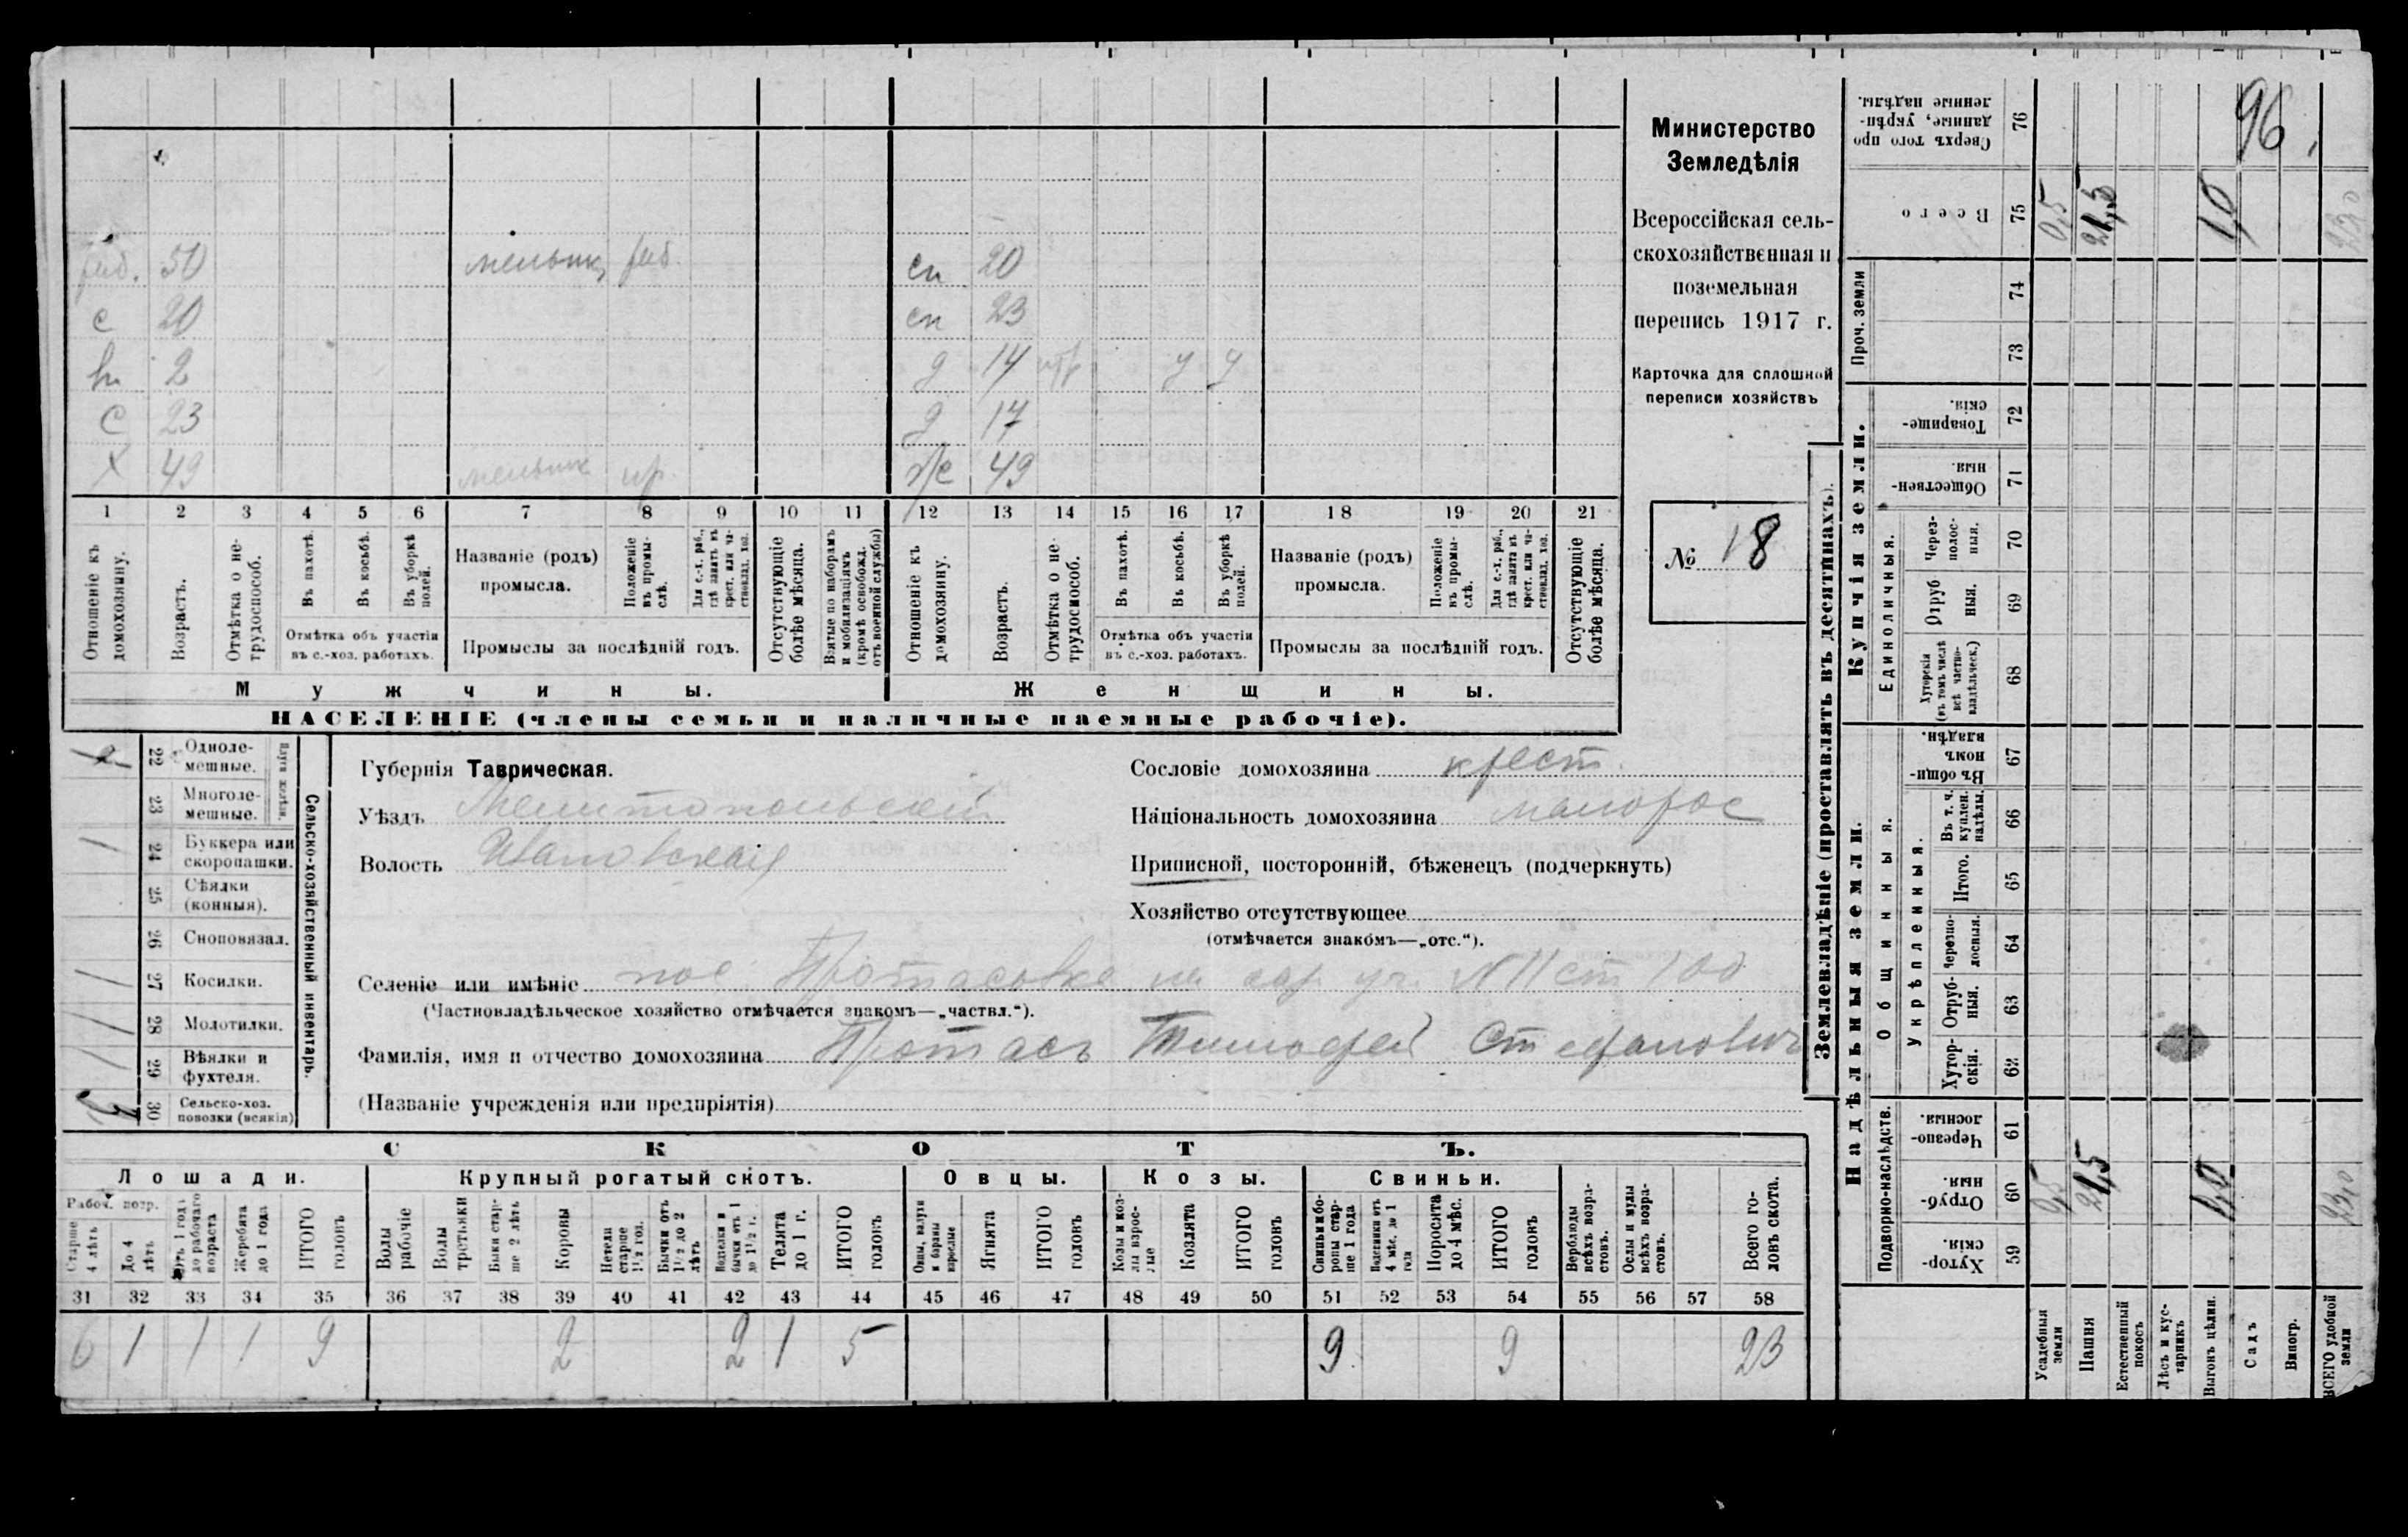 Министерство
Земледѣлія
Всероссійская сель-
скохозяйственная и
поземельная
перепись 1917 г.
Карточка для сплошной
переписи хозяйствъ
№ 18
96
раб. 50 мельник раб. сп 20
с 20 сп 23
2 д 14 у у
с 23 д 17
х 49 мельник ж 49
1 2 3 4 5 6 7 8 9 10 11 12 13 14 15 16 17 18 19 20 21
Отношеніе къ домохозяину.
Возрастъ.
Отмѣтка о не-трудоспособ.
Въ пахотѣ.
Въ косьбѣ.
Въ уборкѣ полей.
Отмѣтка объ участіи въ с.-хоз. работахъ.
Названіе (родъ) промысла.
Положеніе въ промы-слѣ.
Для с.-х. раб., гдѣ занятъ въ крест. или ча-стновлад. хоз.
Промыслы за послѣдній годъ.
Отсутствующіе болѣе мѣсяца.
Взятые по наборамъ и мобилизаціямъ (кромѣ освобожд. отъ военной службы)
Отношеніе къ домохозяину.
Возрастъ.
Отмѣтка о не-трудоспособ.
Въ пахотѣ.
Въ косьбѣ.
Въ уборкѣ полей.
Отмѣтка объ участіи въ с.-хоз. работахъ.
Названіе (родъ) промысла.
Положеніе въ промы-слѣ.
Для с.-х. раб., гдѣ занята въ крест. или ча-стновлад. хоз.
Промыслы за послѣдній годъ.
Отсутствующіе болѣе мѣсяца.
Мужчины. Женщины.
НАСЕЛЕНІЕ (члены семьи и наличные наемные рабочіе).
Сельско-хозяйственный инвентарь.
Плуги желѣзн.
22 Однолe-мешные.
23 Многоле-мешные.
/ 24 Буккера или скоропашки.
25 Сѣялки (конныя).
26 Сноповязал.
/ 27 Косилки.
/ 28 Молотилки.
/ 29 Вѣялки и фухтеля.
30 Сельско-хоз. повозки (всякія)
Губернія Таврическая.
Уѣздъ Мелитопольскій
Волость Ивановская
Сословіе домохозяина крест.
Національность домохозяина малорос
Приписной, посторонній, бѣженецъ (подчеркнуть)
Хозяйство отсутствующее
(отмѣчается знакомъ—„отс.“).
Селеніе или имѣніе пос Протасовка на уч. N 11 ст 100
(Частновладѣльческое хозяйство отмѣчается знакомъ—„частвл.“).
Фамилія, имя и отчество домохозяина Протасъ Тимофей Стефанович
(Названіе учрежденія или предпріятія)
СКОТЪ.
Лошади. Крупный рогатый скотъ. Овцы. Козы. Свиньи.
Рабоч. возр.
Старше 4 лѣтъ
До 4 лѣтъ
Отъ 1 года до рабочаго возраста
Жеребята до 1 года
ИТОГО головъ
Волы рабочіе
Волы третьяки
Быки стар-ше 2 лѣтъ
Коровы
Нетели старше 1½ год.
Бычки отъ 1½ до 2 лѣтъ
Подтелки и бычки отъ 1 до 1½ г.
Телята до 1 г.
ИТОГО головъ
Овцы, валухи и бараны взрослые
Ягнята
ИТОГО головъ
Козы и коз-лы взрос-лые
Козлята
ИТОГО головъ
Свиньи и бо-ровы стар-ше 1 года
Подсвинки отъ 4 мѣс. до 1 года
Поросята до 4 мѣс.
ИТОГО головъ
Верблюды всѣхъ возра-стовъ.
Ослы и мулы всѣхъ возра-стовъ.
Всего го-ловъ скота.
31 32 33 34 35 36 37 38 39 40 41 42 43 44 45 46 47 48 49 50 51 52 53 54 55 56 57 58
6 1 1 1 9 2 2 1 5 9 9 23
Землевладѣніе (проставлять въ десятинахъ).
Надѣльныя земли. Купчія земли. Проч. земли
Подворно-наслѣдств. Общинныя. Единоличныя.
Укрѣпленныя.
Хутор-скія. 59
Отруб-ныя. 60
Черезпо-лосныя. 61
Хутор-скія. 62
Отруб-ныя. 63
Черезпо-лосныя. 64
Итого. 65
Въ т. ч. куплен. надѣлы. 66
Въ общи-номъ владѣн. 67
Хуторскія (въ томъ числѣ всѣ частно-владѣльческ.) 68
Отруб ныя. 69
Через-полос-ныя. 70
Обществен-ныя. 71
Товарище-скія. 72
73
74
Всего 75
Сверхъ того про данные, укрѣп-ленные надѣлы. 76
Усадебныя земли 0,5 0,5
Пашня 21,5 21,5
Естественный покосъ
Лѣсъ и кус-тарникъ
Выгонъ цѣлин. 1,0 1,0
Садъ
Виногр.
ВСЕГО удобной земли 23,0 23,0